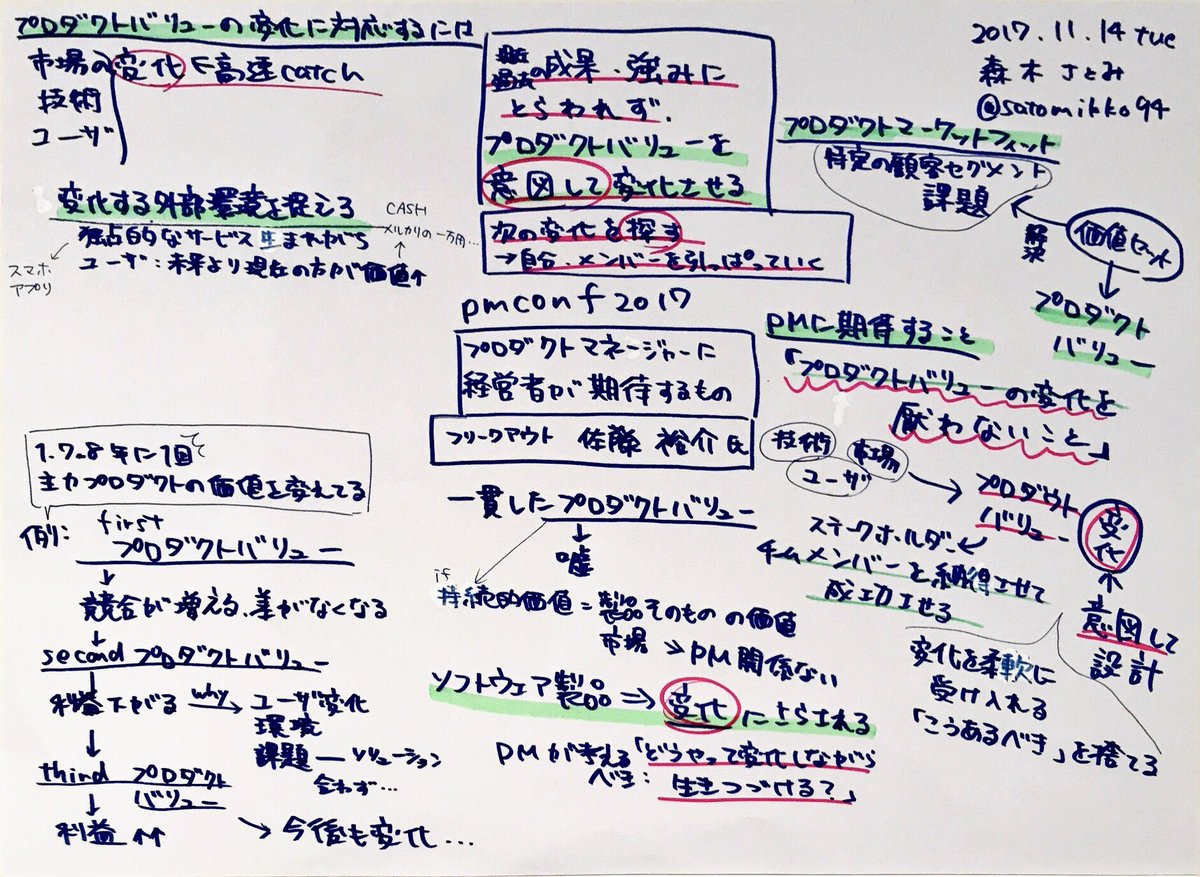 プロダクトバリューの変化に対応するには
市場の変化を高速catch
技術
ユーザ
変化する外部環境を捉える
独占的なサービス生まれがち
ユーザ:未来より現在の方が価値↑
スマホ
アプリ
CASH
メルカリの一万円…
過去の成果・強みに
とらわれず、
プロダクトバリューを
意図して変化させる
次の変化を探す
→自分・メンバーを引っぱっていく
2017.11.14 tue
森木さとみ
@satomikko94
プロダクトマーケットフィット
特定の顧客セグメント
課題
解決
価値セット
プロダクト
バリュー
pmconf 2017
プロダクトマネージャーに
経営者が期待するもの
フリークアウト 佐藤 裕介氏
PMに期待すること
「プロダクトバリューの変化を
厭わないこと」
技術
市場
ユーザ
プロダクト
バリュー
変化
意図して
設計
ステークホルダー
チームメンバーを納得させて
成功させる
変化を柔軟に
受け入れる
「こうあるべき」を捨てる
一貫したプロダクトバリュー
嘘
if
持続的価値=製品そのものの価値
市場 ≫ PM関係ない
ソフトウェア製品⇒変化にさらされる
PMが考える「どうやって変化しながら
べき: 生きつづける?」
1.7~8年に1回で
主力プロダクトの価値を変えてる
例:
first
プロダクトバリュー
競合が増える、差がなくなる
second プロダクトバリュー
利益下がる why→ ユーザ変化
環境
課題―ソリューション
合わず…
third プロダクト
バリュー
利益↑↑
→今後も変化…